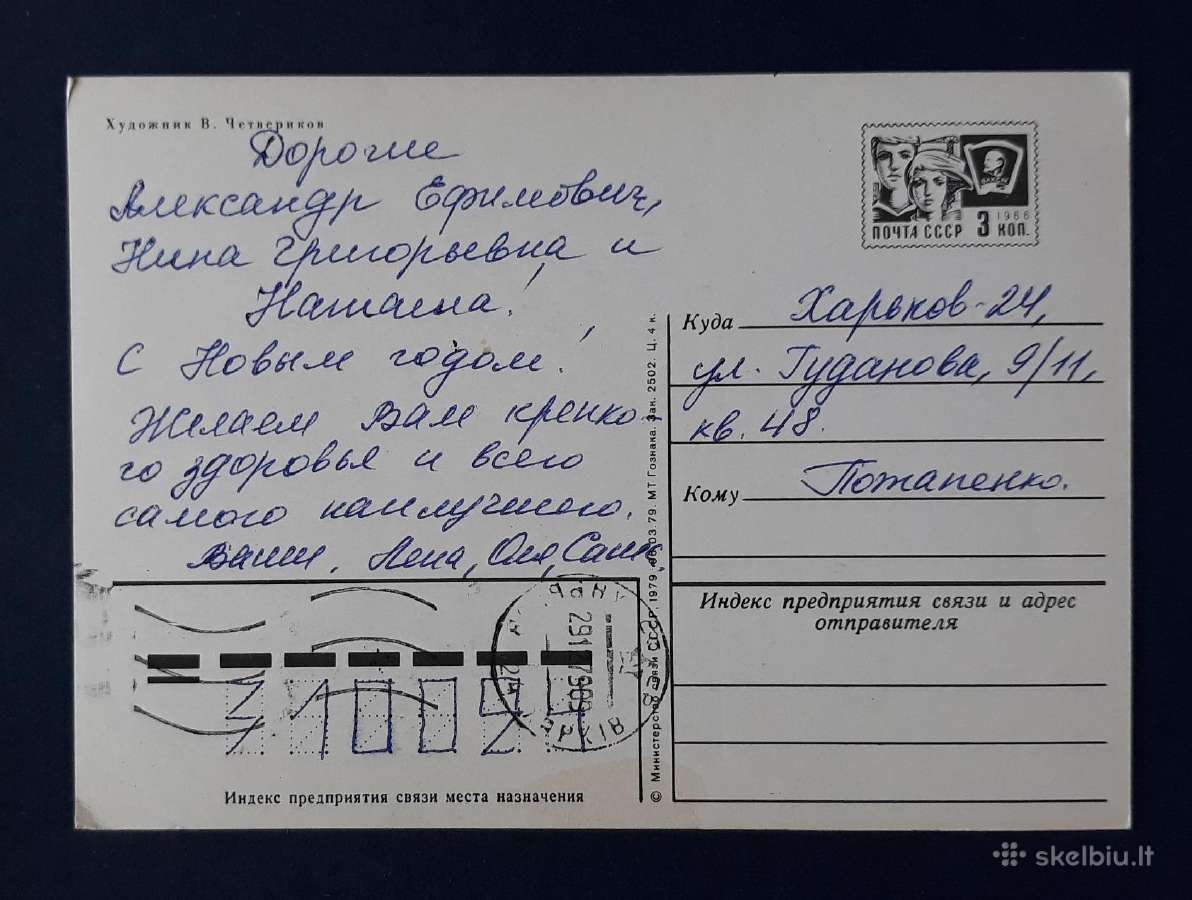 Художник В. Четвериков
Дорогие
Александр Ефимович,
Нина Григорьевна и
Наташа!
С Новым годом!
Желаем Вам крепко-
го здоровья и всего
самого наилучшего.
Ваши, Лена, Оля, Саша
ВЛКСМ
1966
ПОЧТА СССР 3 КОП.
Куда Харьков-24,
ул. Гуданова, 9/11,
кв. 48.
Кому Потапенко.
Индекс предприятия связи и адрес
отправителя
© Министерство связи СССР, 1979. 06.03.79. МТ Гознака. Зак. 2502. Ц. 4 к.
310024
Индекс предприятия связи места назначения
skelbiu.lt